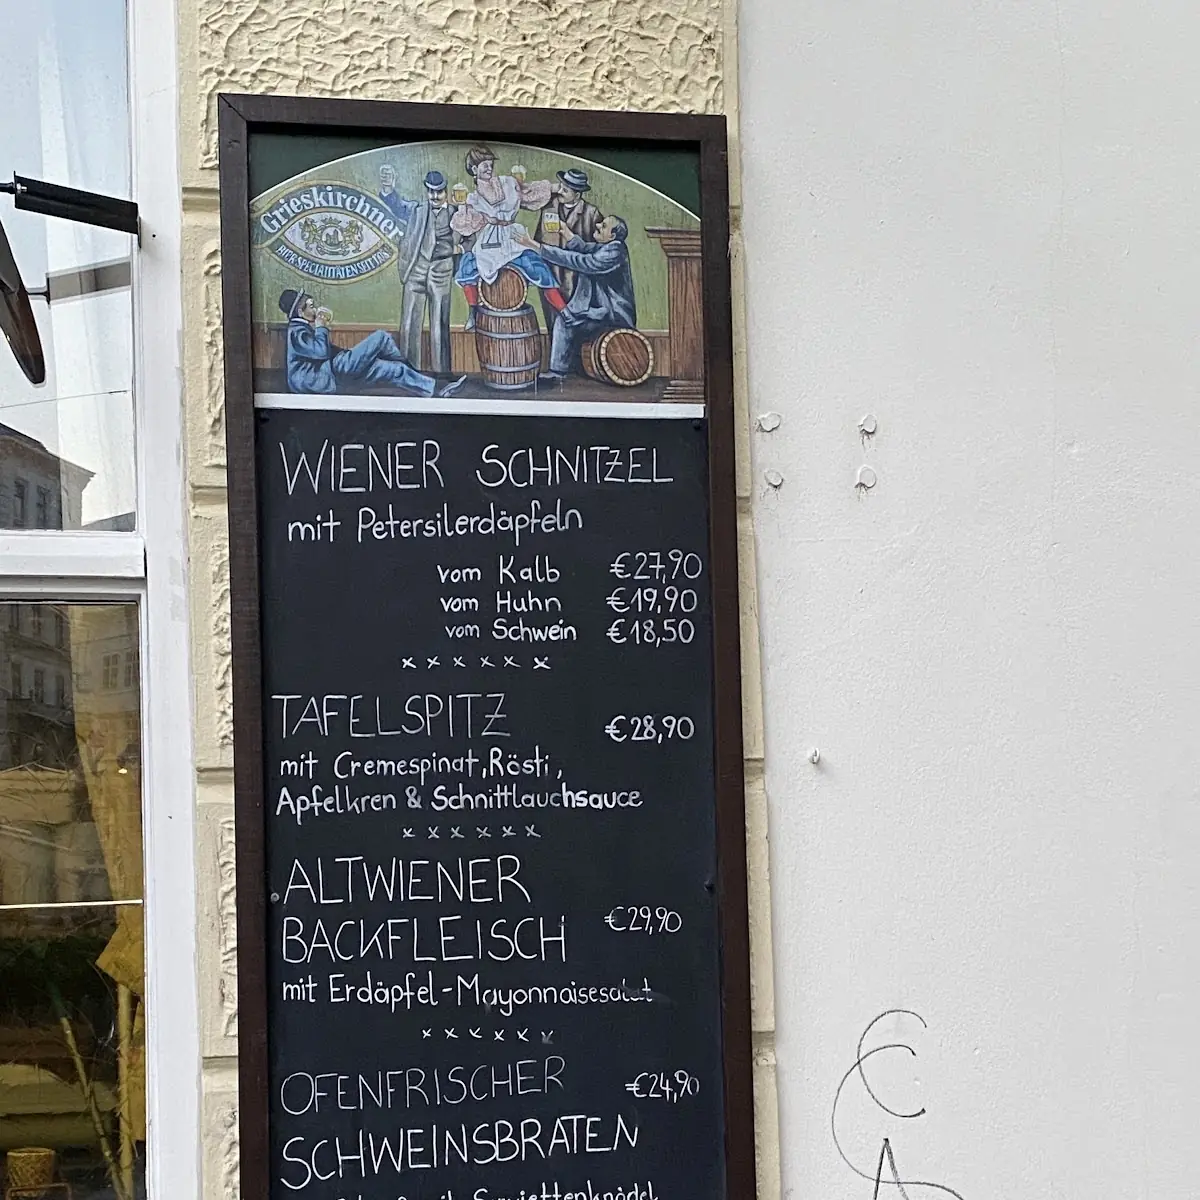 Grieskirchner
BIER-SPECIALITÄTEN SEIT 1708
WIENER SCHNITZEL
mit Petersilerdäpfeln
vom Kalb €27,90
vom Huhn €19,90
vom Schwein €18,50
x x x x x x
TAFELSPITZ €28,90
mit Cremespinat, Rösti,
Apfelkren & Schnittlauchsauce
x x x x x x
ALTWIENER
BACKFLEISCH €29,90
mit Erdäpfel-Mayonnaisesalat
x x x x x x
OFENFRISCHER €24,90
SCHWEINSBRATEN
Serviettenknödel